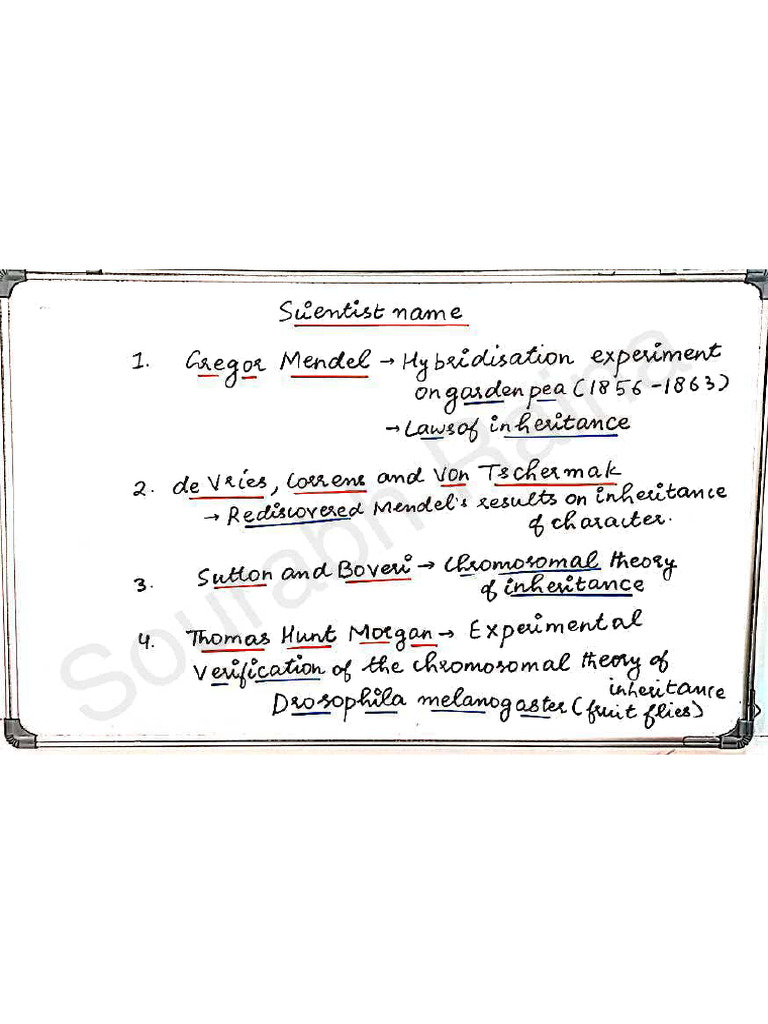 Scientist name
1. Gregor Mendel → Hybridisation experiment
on garden pea (1856-1863)
→ Laws of inheritance
2. de Vries, Correns and Von Tschermak
→ Rediscovered Mendel's results on inheritance
of character.
3. Sutton and Boveri → Chromosomal theory
of inheritance
4. Thomas Hunt Morgan → Experimental
Verification of the chromosomal theory of
inheritance
Drosophila melanogaster (fruit flies)
Sourabh Raina